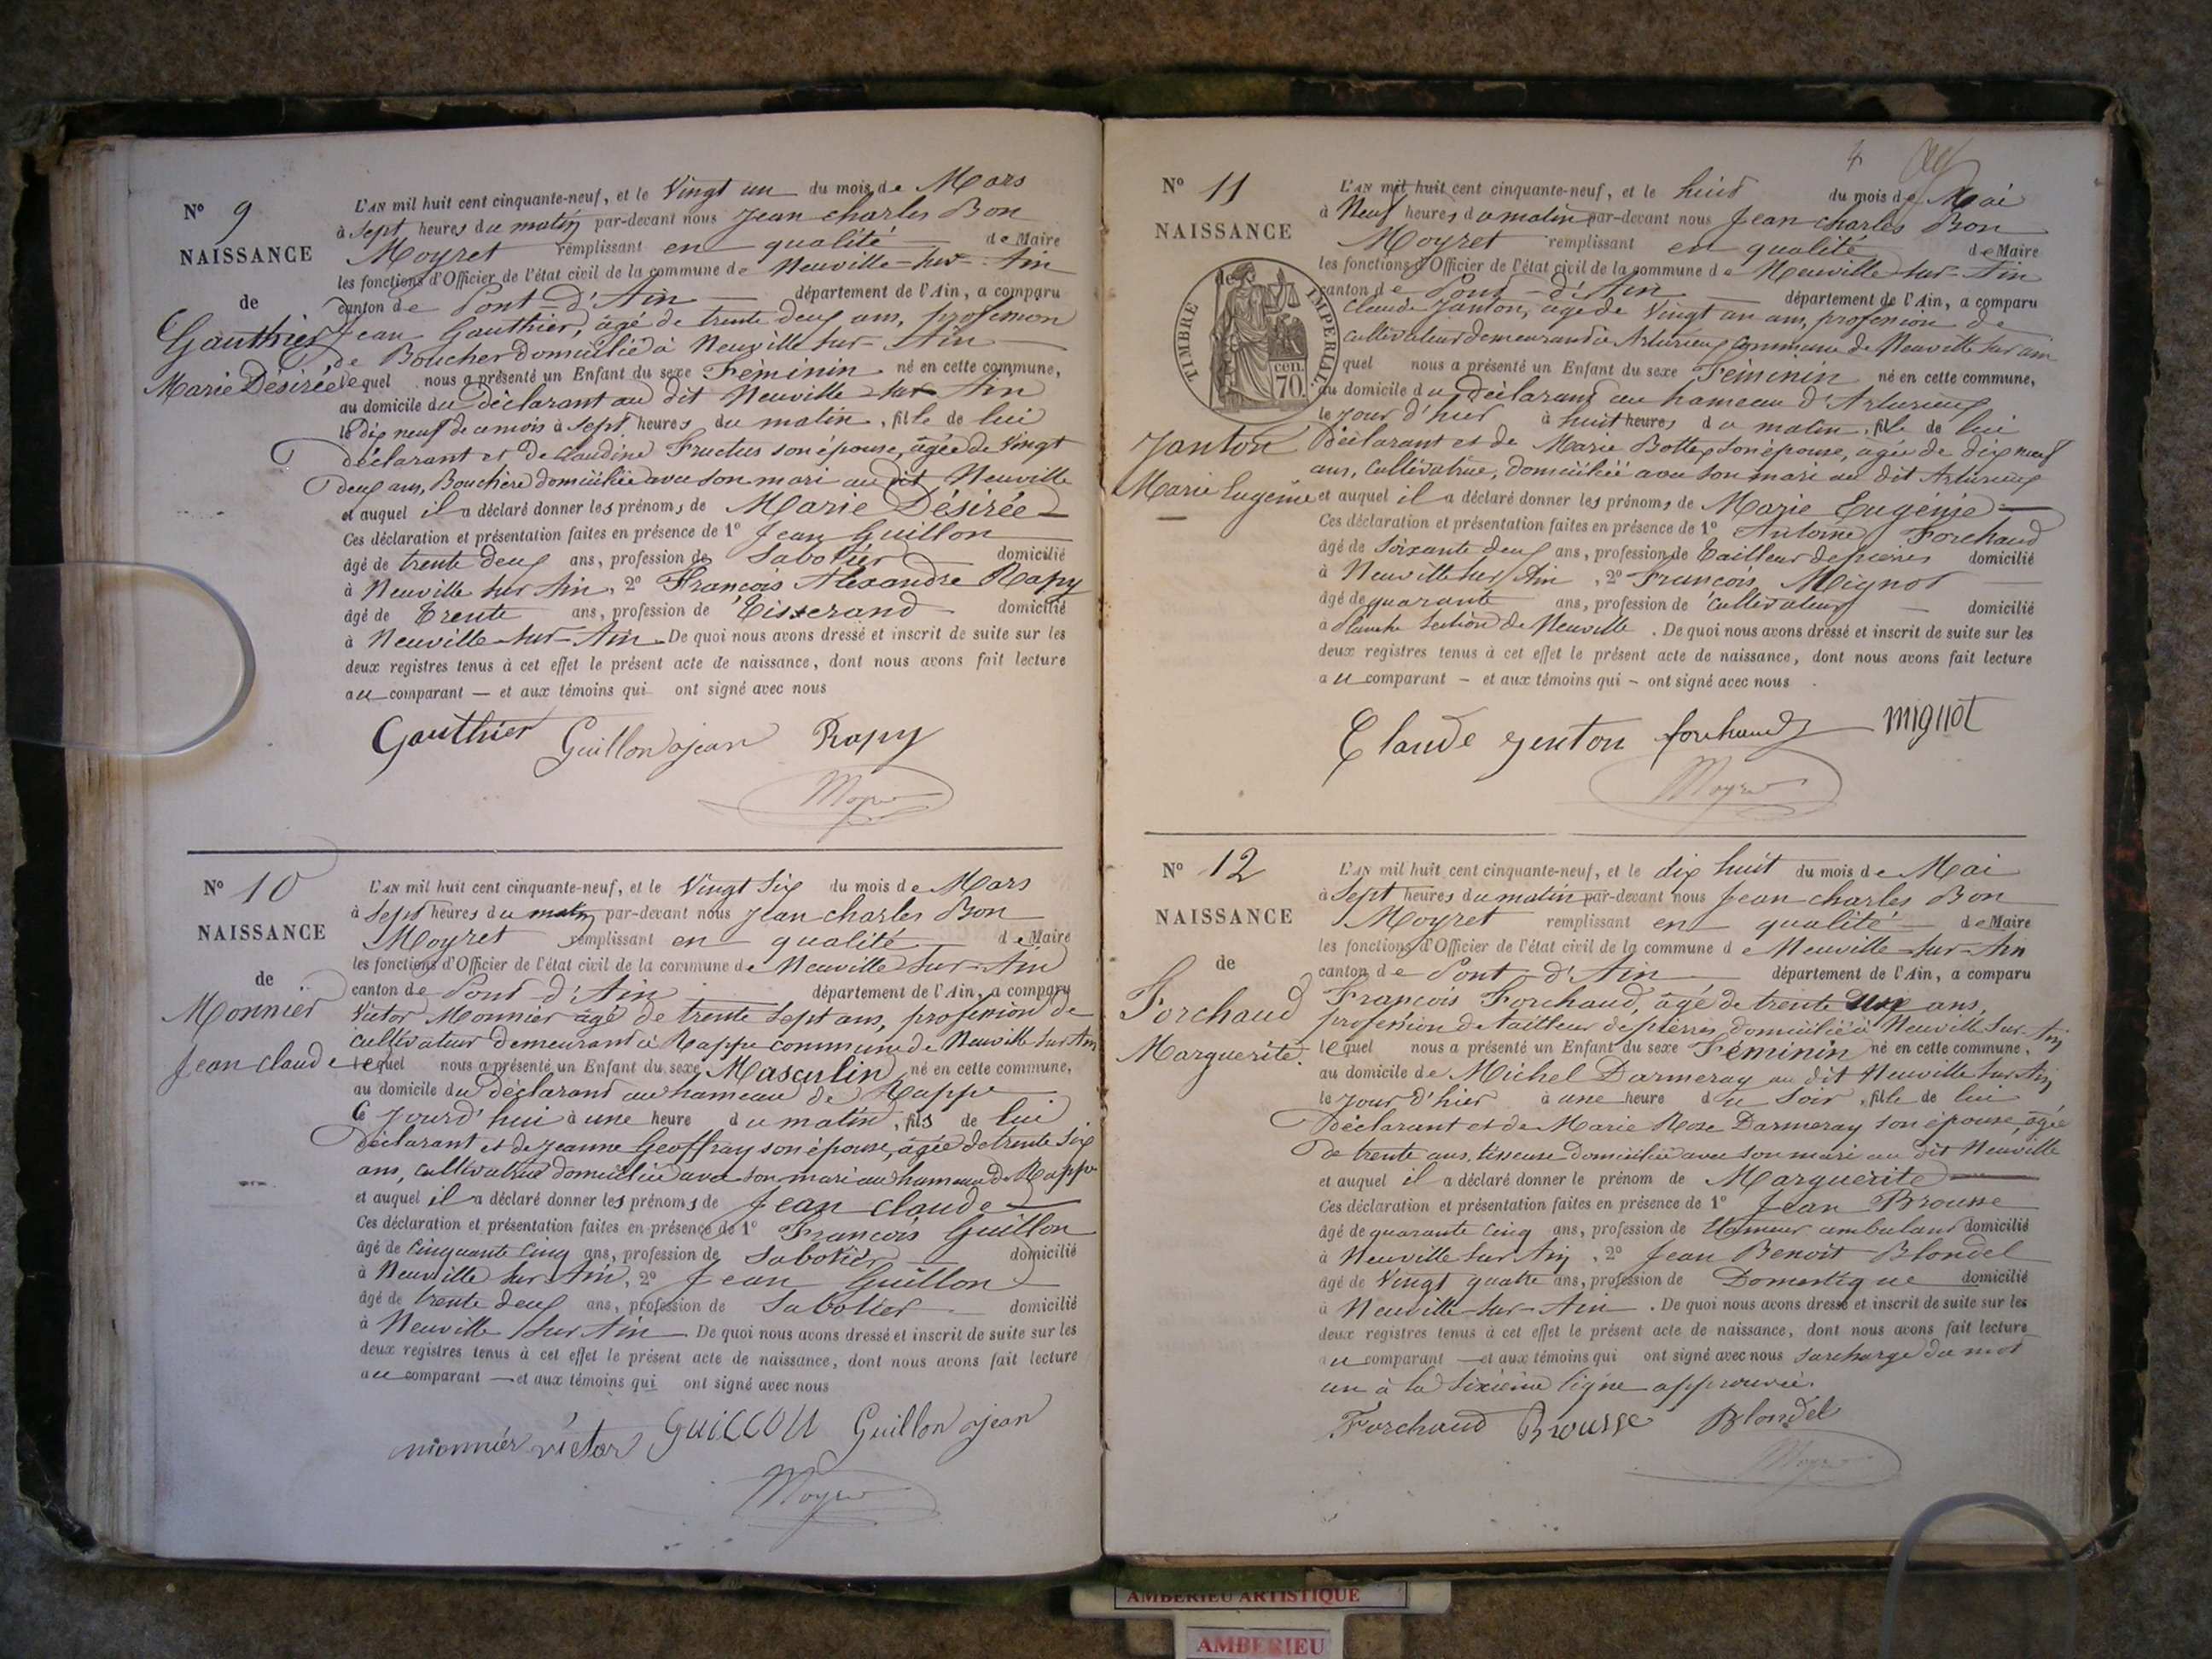 N° 9
NAISSANCE
de
Gauthier
Marie Désirée
L'AN mil huit cent cinquante-neuf, et le Vingt un du mois de Mars
à Sept heures du matin par-devant nous Jean Charles Bon
Moyret remplissant en qualité de Maire
les fonctions d'Officier de l'état civil de la commune de Neuville-sur-Ain
canton de Pont-d'Ain département de l'Ain, a comparu
Jean Gauthier, âgé de trente deux ans, profession
de Boucher domicilié à Neuville sur-Ain
lequel nous a présenté un Enfant du sexe Féminin né en cette commune,
au domicile du déclarant au dit Neuville-sur Ain
le dix neuf de ce mois à Sept heures du matin, fille de lui
déclarant et de Claudine Fructus son épouse, âgée de Vingt
deux ans, Bouchère domiciliée avec son mari au dit Neuville
et auquel il a déclaré donner les prénoms de Marie Désirée
Ces déclaration et présentation faites en présence de 1° Jean Guillon
âgé de trente deux ans, profession de Sabotier domicilié
à Neuville sur Ain, 2° François Alexandre Rapy
âgé de Trente ans, profession de Tisserand domicilié
à Neuville-sur-Ain. De quoi nous avons dressé et inscrit de suite sur les
deux registres tenus à cet effet le présent acte de naissance, dont nous avons fait lecture
au comparant — et aux témoins qui ont signé avec nous
Gauthier Guillon Jean Rapy
Moyret
N° 10
NAISSANCE
de
Monnier
Jean Claude
L'AN mil huit cent cinquante-neuf, et le Vingt Six du mois de Mars
à Sept heures du matin par-devant nous Jean Charles Bon
Moyret remplissant en qualité de Maire
les fonctions d'Officier de l'état civil de la commune de Neuville sur-Ain
canton de Pont-d'Ain département de l'Ain, a comparu
Victor Monnier âgé de trente Sept ans, profession de
cultivateur demeurant à Rappe commune de Neuville sur Ain
lequel nous a présenté un Enfant du sexe Masculin né en cette commune,
au domicile du déclarant au hameau de Rappe
Ce Jourd'hui à une heure du matin, fils de lui
déclarant et de Jeanne Geoffray son épouse, âgée de trente Six
ans, cultivatrice domiciliée avec son mari au hameau de Rappe
et auquel il a déclaré donner les prénoms de Jean Claude
Ces déclaration et présentation faites en présence de 1° François Guillon
âgé de Cinquante Cinq ans, profession de Sabotier domicilié
à Neuville sur-Ain, 2° Jean Guillon
âgé de trente deux ans, profession de Sabotier domicilié
à Neuville sur Ain De quoi nous avons dressé et inscrit de suite sur les
deux registres tenus à cet effet le présent acte de naissance, dont nous avons fait lecture
au comparant — et aux témoins qui ont signé avec nous
monnier victor GUILLON Guillon Jean
Moyret
4
N° 11
NAISSANCE
de
TIMBRE IMPERIAL
70 cen.
Janton
Marie Eugénie
L'AN mil huit cent cinquante-neuf, et le huit du mois de Mai
à Neuf heures du matin par-devant nous Jean Charles Bon
Moyret remplissant en qualité de Maire
les fonctions d'Officier de l'état civil de la commune de Neuville-sur-Ain
canton de Pont-d'Ain département de l'Ain, a comparu
Claude Janton, âgé de Vingt un ans, profession de
cultivateur demeurant à Arturieux Commune de Neuville sur ain
quel nous a présenté un Enfant du sexe Féminin né en cette commune,
au domicile du déclarant au hameau d'Arturieux
le jour d'hier à huit heures du matin, fille de lui
déclarant et de Marie Bottex son épouse, âgée de dix neuf
ans, Cultivatrice, domiciliée avec son mari au dit Arturieux
et auquel il a déclaré donner les prénoms de Marie Eugénie
Ces déclaration et présentation faites en présence de 1° Antoine Forchaud
âgé de Soixante deux ans, profession de Tailleur de pierres domicilié
à Neuville sur Ain, 2° François Mignot
âgé de quarante ans, profession de Cultivateur domicilié
à Planche Section de Neuville. De quoi nous avons dressé et inscrit de suite sur les
deux registres tenus à cet effet le présent acte de naissance, dont nous avons fait lecture
au comparant – et aux témoins qui – ont signé avec nous
Claude Jenton forchaud mignot
Moyret
N° 12
NAISSANCE
de
Forchaud
Marguerite.
L'AN mil huit cent cinquante-neuf, et le dix huit du mois de Mai
à Sept heures du matin par-devant nous Jean Charles Bon
Moyret remplissant en qualité de Maire
les fonctions d'Officier de l'état civil de la commune de Neuville-sur-Ain
canton de Pont-d'Ain département de l'Ain, a comparu
François Forchaud, âgé de trente un ans,
profession de tailleur de pierres domicilié à Neuville sur-Ain
lequel nous a présenté un Enfant du sexe Féminin né en cette commune,
au domicile de Michel Darmeray au dit Neuville sur Ain
le Jour d'hier à une heure du Soir, fille de lui
déclarant et de Marie Rose Darmeray son épouse, âgée
de trente ans, tisseuse domiciliée avec son mari au dit Neuville
et auquel il a déclaré donner le prénom de Marguerite
Ces déclaration et présentation faites en présence de 1° Jean Brousse
âgé de quarante Cinq ans, profession de Etameur ambulant domicilié
à Neuville sur Ain, 2° Jean Benoit Blondel
âgé de Vingt quatre ans, profession de Domestique domicilié
à Neuville-sur-Ain. De quoi nous avons dressé et inscrit de suite sur les
deux registres tenus à cet effet le présent acte de naissance, dont nous avons fait lecture
au comparant — et aux témoins qui ont signé avec nous surcharge du mot
un à la Sixième ligne approuvée.
Forchaud Brousse Blondel
Moyret
AMBERIEU ARTISTIQUE
AMBERIEU